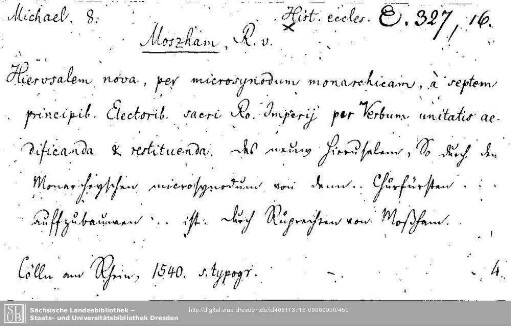 Michael. 8. Hist. eccles. E. 327, 16.
Moszham, R. v.
Hierusalem nova, per microsynodum monarchicam, à septem
principib. Electorib. sacri Ro. Imperij per Verbum unitatis ae-
dificanda & restituenda. Des neuwen Hierusalem, So durch den
Monarchischen microsynodum von denn.. Churfürsten . .
auffzubauwen .. ist. durch Ruprechten von Moßham.
Cölln am Rhein, 1540. s. typogr. 4.
Sächsische Landesbibliothek –
Staats- und Universitätsbibliothek Dresden